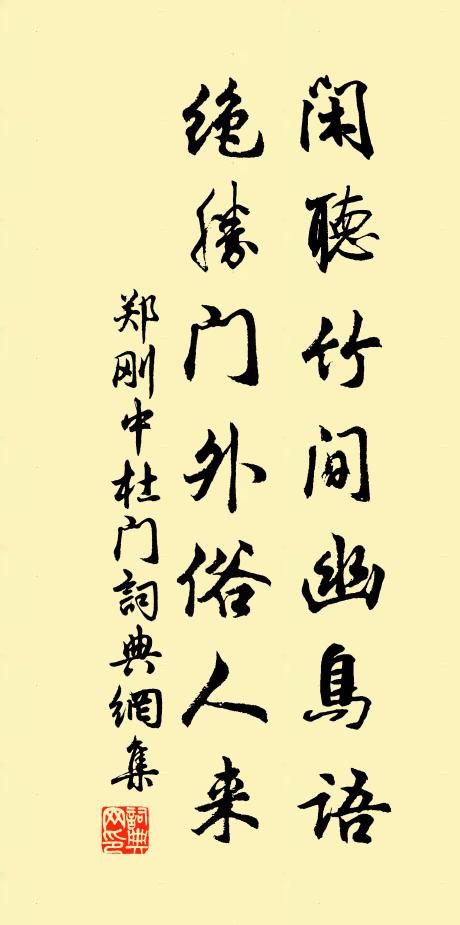 闲聽竹间幽鳥語
绝勝门外俗人来
郑刚中杜门詞典網集
詞典网印